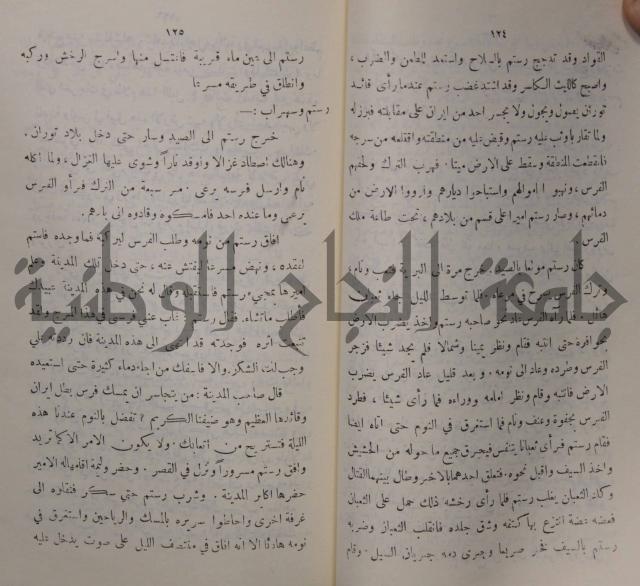 ١٢٤
القواد وقد تدجج رستم بالسلاح واستعد للطعن والضرب،
واصبح كالليث الكاسر وقد اشتد غضب رستم عندما رأى قائد
توران يصول ويجول ولا يجسر احد من ايران على مقابلته فبرز له
ولما تقاربا وثب عليه رستم وقبض عليه من منطقته واقتلعه من سرجه
فانقطعت المنطقة وسقط على الارض ميتا. فهرب الترك ولحقهم
الفرس، ونهبوا اموالهم واستباحوا ديارهم وارووا الارض من
دمائهم، وصار رستم اميرا على قسم من بلادهم، تحت طاعة ملك
الفرس.
كان رستم مولعا بالصيد. خرج مرة الى البرية فتعب ونام
وترك الفرس يسرح في مرعاه. فلما توسط الليل جاء ثعبان
هائل. فلما رآه الفرس عاد نحو صاحبه رستم واخذ يضرب الارض
بحوافره حتى انتبه فقام ونظر يمينا وشمالا فلم يجد شيئا فزجر
الفرس وطرده وعاد الى نومه. وبعد قليل عاد الفرس يضرب
الارض فانتبه وقام ونظر امامه ووراءه فما رأى شيئا، فطرد
الفرس بجفوة وعنف ونام فما استغرق في النوم حتى اتاه ايضا
فقام رستم فرأى ثعبانا يتنفس فيحرق جميع ما حوله من الحشيش
واخذ السيف واقبل نحوه. فتعلق احدهما بالآخر وطال بينهما القتال
وكاد الثعبان يغلب رستم فلما رأى رخشه ذلك حمل على الثعبان
فعضه عضة انتزع بها كتفه وشق جلده فانقلب الثعبان وضربه
رستم بالسيف فخر صريعا وجرى دمه جريان السيل. وقام
١٢٥
رستم الى عين ماء قريبة فاغتسل منها واسرج الرخش وركبه
وانطلق في طريقه مسرعا
رستم وسهراب :—
خرج رستم الى الصيد وسار حتى دخل بلاد توران.
وهنالك اصطاد غزالا واوقد ناراً وشوى عليها الغزال، ولما اكله
نام وارسل فرسه يرعى. مر سبعة من الترك فرأوا الفرس
يرعى وما عنده احد فامسكوه وقادوه الى ديارهم.
افاق رستم من نومه وطلب الفرس ليركبه فما وجده فاغتم
لفقده، ونهض مسرعا يفتش عنه، حتى دخل تلك المدينة وعلم
اميرها بمجيء رستم فاستقبله وقال له نحن في هذه المدينة عبيدك
فاطلب ما تشاء. فقال رستم: غاب عني فرسي في هذا المرج ولقد
تتبعت اثره فوجدته قد انتهى الى هذه المدينة فان رددته علي
وجب لك الشكر. والا فاسفك من اجله دماء كثيرة حتى استعيده
قال صاحب المدينة: من يتجاسر ان يمسك فرس بطل ايران
وقائدها العظيم وهو ضيفنا الكريم؟ تفضل بالنوم عندنا هذه
الليلة فتستريح من اتعابك. ولا يكون الامر الا كما تريد
وافق رستم مسروراً ونزل في القصر. وحضر وليمة اقامها له الامير
حضرها اكابر المدينة. وشرب رستم حتى سكر فنقلوه الى
غرفة اخرى واحاطوا سريره بالمسك والرياحين واستغرق في
نومه هادئا الا انه افاق في منتصف الليل على صوت يدخل عليه
جامعة النجاح الوطنية